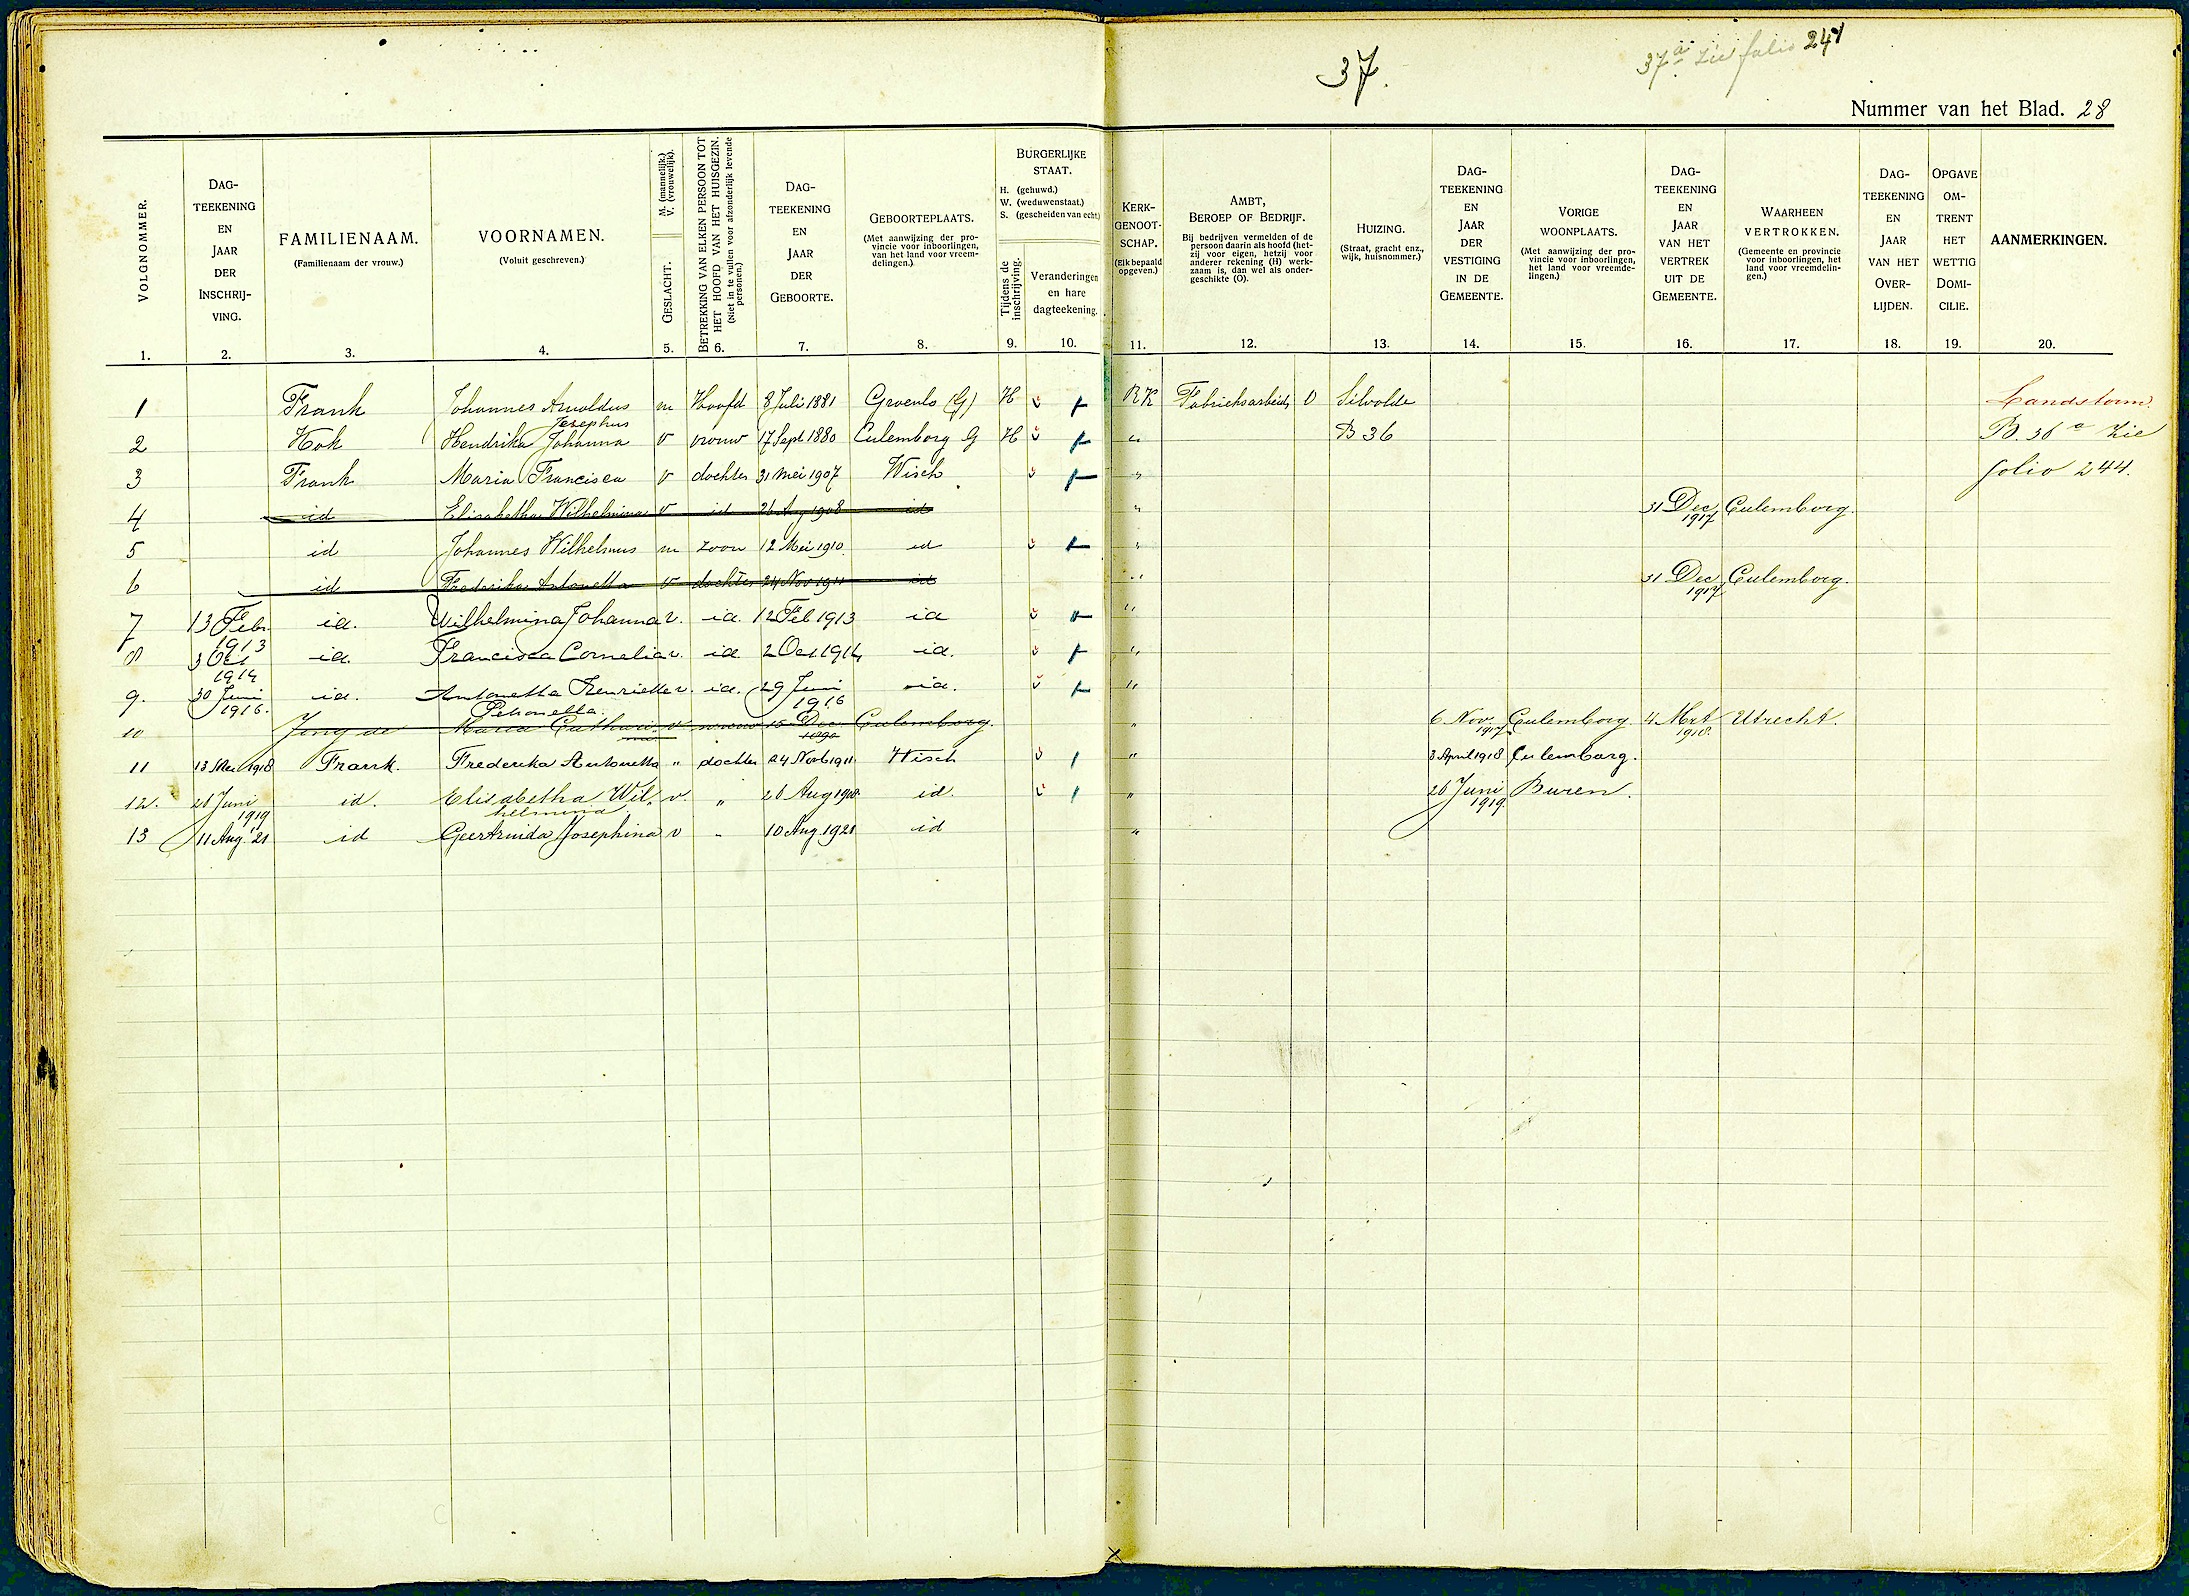 37.
37a zie folio 241
Nummer van het Blad. 28
VOLGNOMMER.
1.
DAG-
TEEKENING
EN
JAAR
DER
INSCHRIJ-
VING.
2.
FAMILIENAAM.
(Familienaam der vrouw.)
3.
VOORNAMEN.
(Voluit geschreven.)
4.
M. (mannelijk.)
V. (vrouwelijk).
GESLACHT.
5.
BETREKKING VAN ELKEN PERSOON TOT
HET HOOFD VAN HET HUISGEZIN.
(Niet in te vullen voor afzonderlijk levende
personen.)
6.
DAG-
TEEKENING
EN
JAAR
DER
GEBOORTE.
7.
GEBOORTEPLAATS.
(Met aanwijzing der pro-
vincie voor inboorlingen,
van het land voor vreem-
delingen.)
8.
BURGERLIJKE
STAAT.
H. (gehuwd.)
W. (weduwenstaat.)
S. (gescheiden van echt)
Tijdens de
inschrijving.
9.
Veranderingen
en hare
dagteekening.
10.
KERK-
GENOOT-
SCHAP.
(Elk bepaald
opgeven.)
11.
AMBT,
BEROEP OF BEDRIJF.
Bij bedrijven vermelden of de
persoon daarin als hoofd (het-
zij voor eigen, hetzij voor
anderer rekening (H) werk-
zaam is, dan wel als onder-
geschikte (O).
12.
HUIZING.
(Straat, gracht enz.,
wijk, huisnommer.)
13.
DAG-
TEEKENING
EN
JAAR
DER
VESTIGING
IN DE
GEMEENTE.
14.
VORIGE
WOONPLAATS.
(Met aanwijzing der pro-
vincie voor inboorlingen,
het land voor vreemde-
lingen.)
15.
DAG-
TEEKENING
EN
JAAR
VAN HET
VERTREK
UIT DE
GEMEENTE.
16.
WAARHEEN
VERTROKKEN.
(Gemeente en provincie
voor inboorlingen, het
land voor vreemdelin-
gen.)
17.
DAG-
TEEKENING
EN
JAAR
VAN HET
OVER-
LIJDEN.
18.
OPGAVE
OM-
TRENT
HET
WETTIG
DOMI-
CILIE.
19.
AANMERKINGEN.
20.
1 Frank Johannes Arnoldus m Hoofd 8 Juli 1881 Groenlo (G) H RK Fabrieksarbeider O Silvolde Landstorm.
Josephus
2 Kok Hendrika Johanna v vrouw 17 Sept 1880 Culemborg G H " B 36 B. 36 a Zie
3 Frank Maria Francisca v dochter 31 Mei 1907 Wisch " folio 244.
4 id Elisabetha Wilhelmina v id 26 Aug 1908 id " 31 Dec Culemborg.
1917
5 id Johannes Wilhelmus m zoon 12 Mei 1910 id "
6 id Frederika Antonetta v dochter 24 Nov 1911 id " 31 Dec Culemborg.
1917
7 13 Febr id. Wilhelmina Johanna v. id. 12 Feb 1913 id "
1913
8 3 Oct id. Francisca Cornelia v. id. 2 Oct. 1914 id. "
1914
9. 30 Juni id. Antonetta Henriette v. id. 29 Juni id. "
1916. Petronella. 1916
10 Jong de Maria Catharina v vrouw 15 Dec. Culemborg. " 6 Nov. Culemborg. 4 Mrt Utrecht.
1890 1917 1918.
11 13 Mei 1918 Frank. Frederika Antonetta " dochter 24 Nov 1911. Wisch " 3 April 1918 Culemborg.
12. 28 Juni id. Elisabetha Wil- v. " 26 Aug 1908 id. " 26 Juni Buren.
1919 helmina 1919.
13 11 Aug. '21 id Geertruida Josephina v " 10 Aug. 1921 id "